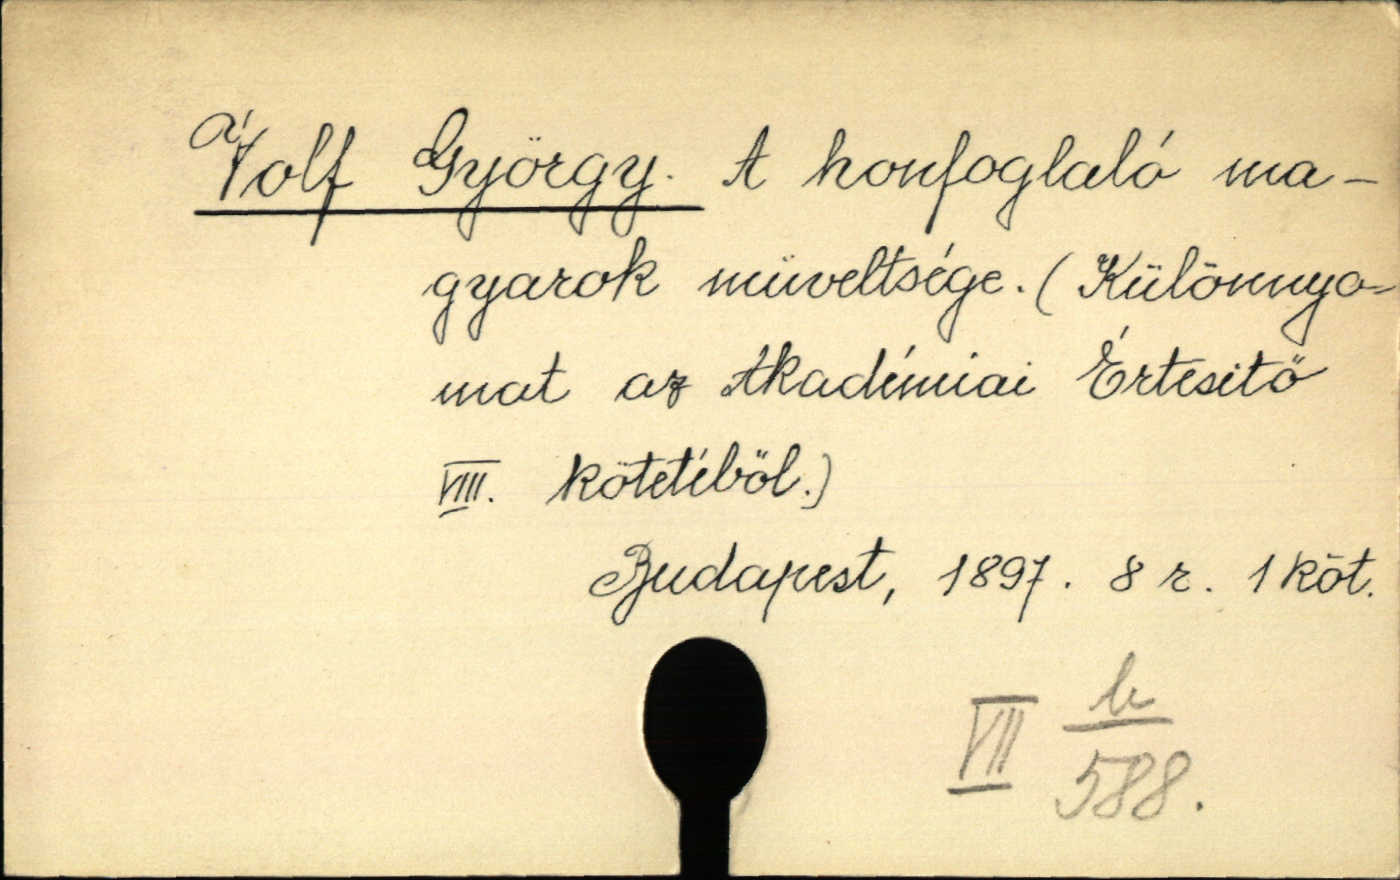 Volf György. A honfoglaló ma-
gyarok müveltsége. (Különnyo-
mat az Akadémiai Értesitő
VIII. kötetéből.)
Budapest, 1897. 8 r. 1 köt.
VII b
588.